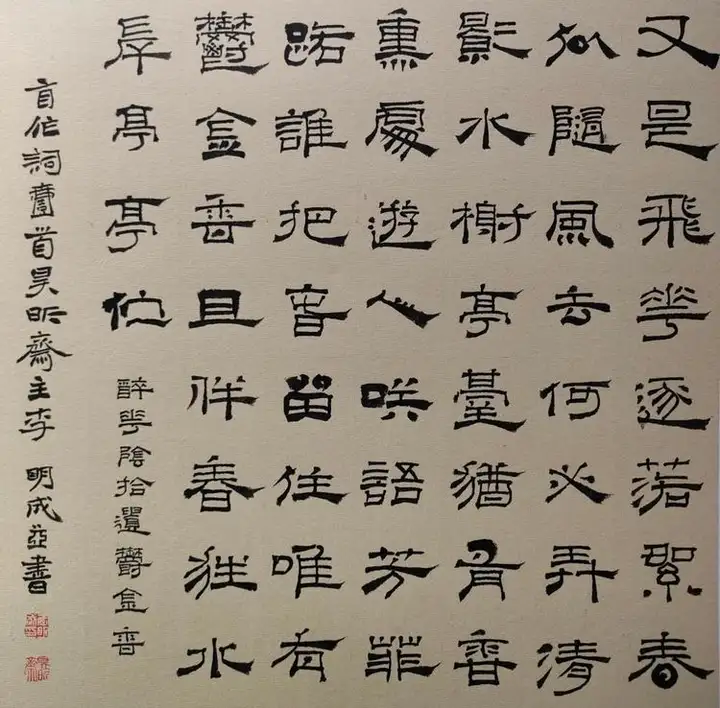 又是飛花逐落絮春
似隨風去何必弄清
影水榭亭臺猶有香
熏處遊人笑語芳菲
路誰把旾留住唯有
鬱金香且伴春歸水
岸亭亭佇
醉花陰拾遺鬱金香
自作詞壹首昊昕齋主李明成並書